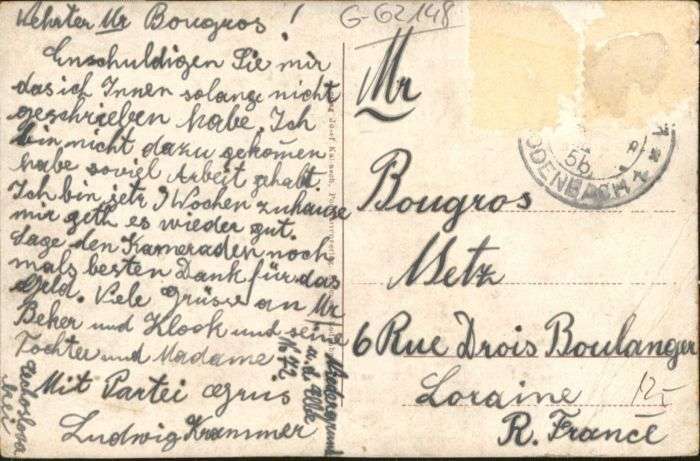 Wehrter Mr Bougros!
Enschuldigen Sie mir
das ich Innen solange nicht
geschrieben habe, Ich
bin nicht dazu gekomen
habe soviel Arbeit gehabt.
Ich bin jetz 9 Wochen zuhause
mir geth es wieder gut.
Sage den Kameraden noch
mals besten Dank für das
Geld. Viele Grüsse an Mr
Beker und Klook und seine
Tochter und Madame
Mit Partei Grüs
Ludwig Krammer
Niedergrund
a.d. Elbe
N. 72
Zechoslova
kei
G-62148
Mr
Bougros
Metz
6 Rue Drois Boulanger
Loraine
R. France
12,-
ODENBACH 1